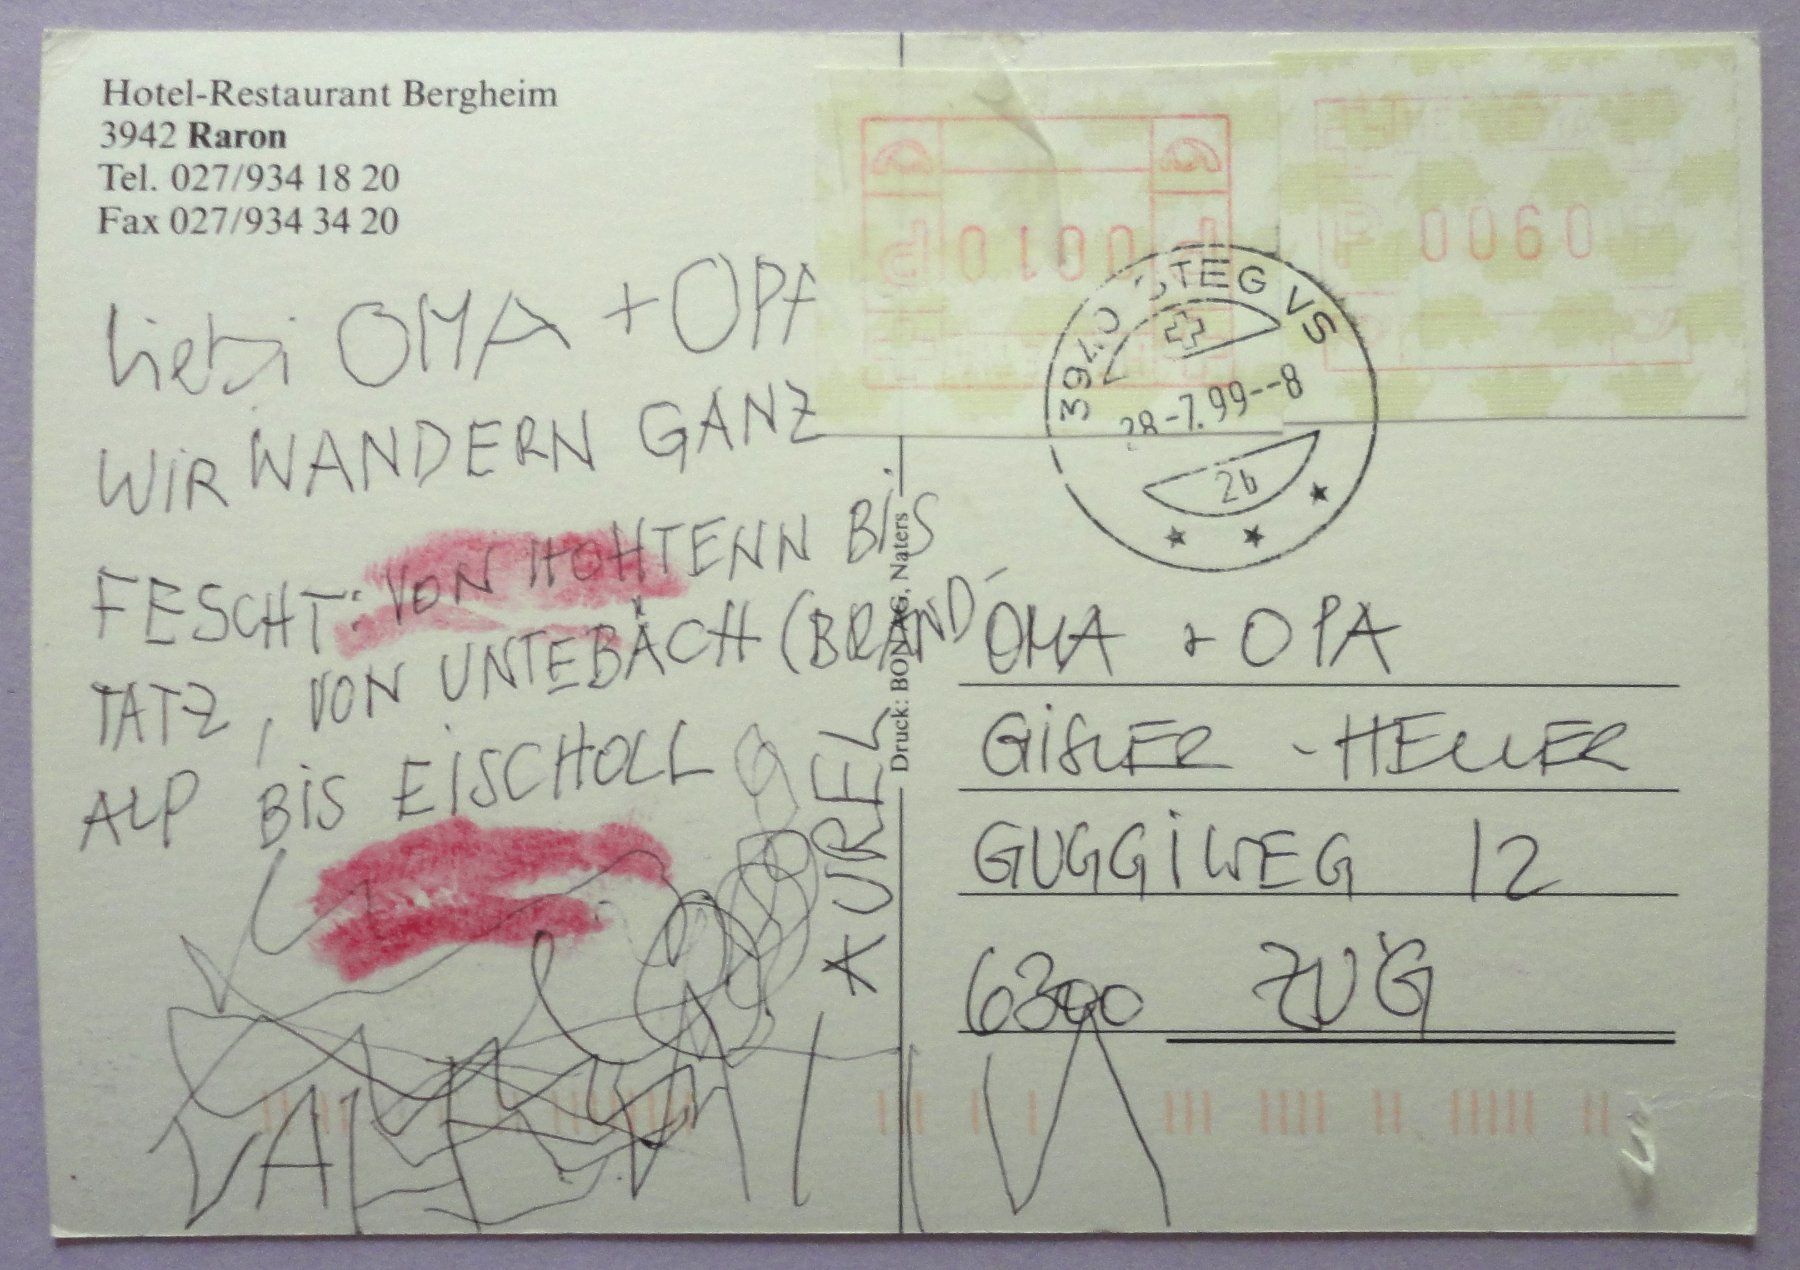 Hotel-Restaurant Bergheim
3942 Raron
Tel. 027/934 18 20
Fax 027/934 34 20
liebi OMA + OPA
WIR WANDERN GANZ
FESCHT: VON HOHTENN BIS
TATZ, VON UNTEBÄCH (BRAND-
ALP BIS EISCHOLL
AUREL
Druck: BON AG, Naters
0010
0060
3940 STEG VS
28-7.99--8
2b
OMA + OPA
GISLER - HELLER
GUGGIWEG 12
6300 ZUG